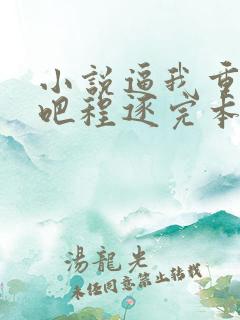 小説逼我重
吧程逐完本
湯龍光
未经同意禁止转载